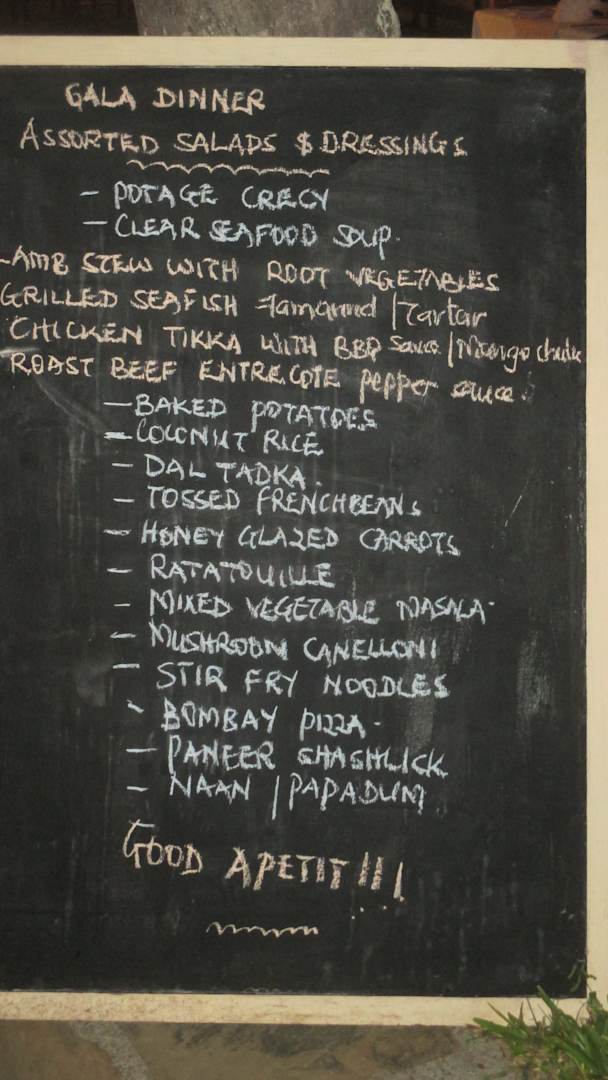 GALA DINNER
ASSORTED SALADS $ DRESSINGS
- POTAGE CRECY
- CLEAR SEAFOOD SOUP.
LAMB STEW WITH ROOT VEGETABLES
GRILLED SEAFISH Tamarind / Tartar
CHICKEN TIKKA WITH BBQ Sauce / Mango
ROAST BEEF ENTRECOTE pepper sauce.
- BAKED POTATOES
- COCONUT RICE
- DAL TADKA.
- TOSSED FRENCHBEANS
- HONEY GLAZED CARROTS
- RATATOUILLE
- MIXED VEGETABLE MASALA.
- MUSHROOM CANELLONI
- STIR FRY NOODLES
- BOMBAY PIZZA.
- PANEER SHASHLICK
- NAAN / PAPADUM
GOOD APETIT!!!